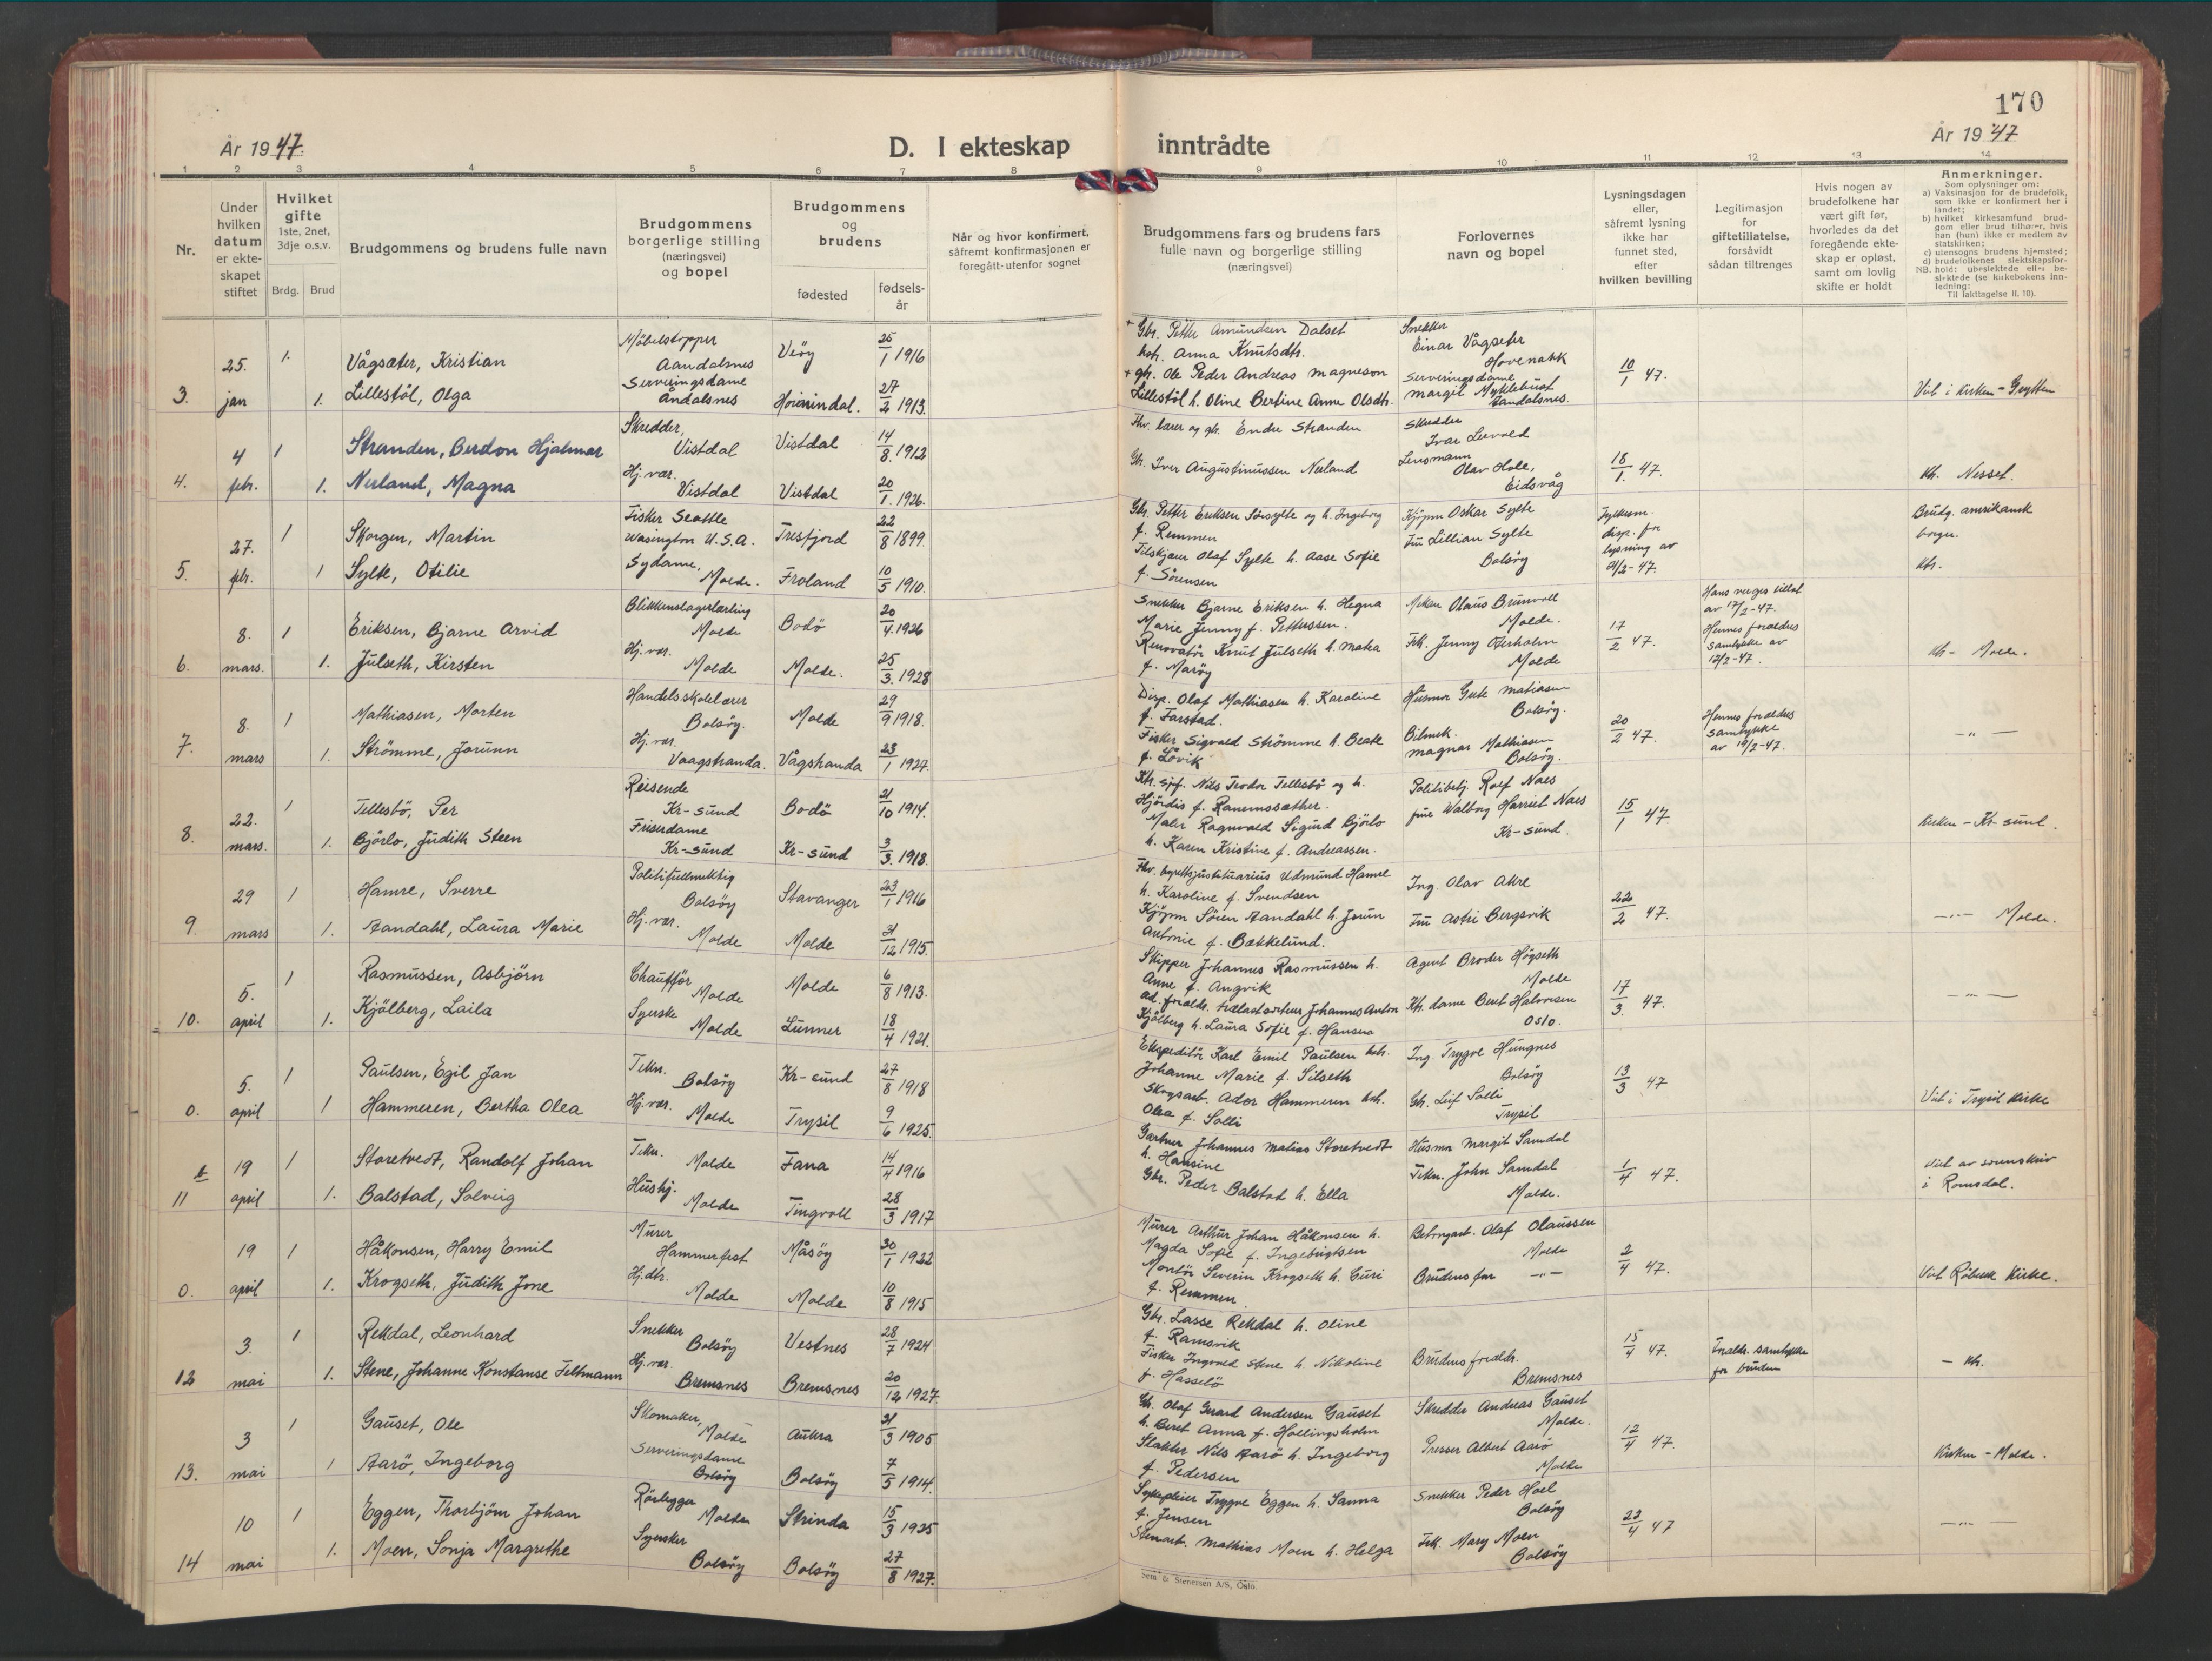 170
År 1947.
D. I ekteskap inntrådte
År 1947
1 2 3 4 5 6 7 8 9 10 11 12 13 14
Nr.
Under hvilken datum er ekteskapet stiftet
Hvilket gifte
1ste, 2net, 3dje o.s.v.
Brdg. Brud
Brudgommens og brudens fulle navn
Brudgommens borgerlige stilling (næringsvei) og bopel
Brudgommens og brudens
fødested
fødsels-år
Når og hvor konfirmert, såfremt konfirmasjonen er foregått utenfor sognet
Brudgommens fars og brudens fars fulle navn og borgerlige stilling (næringsvei)
Forlovernes navn og bopel
Lysningsdagen eller, såfremt lysning ikke har funnet sted, efter hvilken bevilling
Legitimasjon for giftetillatelse, forsåvidt sådan tiltrenges
Hvis nogen av brudefolkene har vært gift før, hvorledes da det foregående ekteskap er opløst, samt om lovlig skifte er holdt
Anmerkninger.
Som oplysninger om:
a) Vaksinasjon for de brudefolk, som ikke er konfirmert her i landet;
b) hvilket kirkesamfund brudgom eller brud tilhører, hvis han (hun) ikke er medlem av statskirken;
c) utensogns brudens hjemsted;
d) brudefolkenes slektskapsforhold: ubeslektede eller beslektede (se kirkebokens innledning:
NB. Til iakttagelse II, 10).
3. 25. jan 1. Vågsæter, Kristian
Møbelstopper Aandalsnes Veöy 25/1 1916
Gbr. Petter Amundsen Dalset hstr. Anna Knutsdtr.
Snekker Einar Vågseter Hovenakk
10/1 47.
1. Lillestöl, Olga
Serveringsdame Åndalsnes 27/2 1913.
gbr. Ole Peder Andreas Magneson Lillestöl h. Oline Bertine Anne Olsdtr.
Serveringsdame Margit Myklebust Aandalsnes.
Viet i kirken - Grytten
4. 4 febr. 1 Stranden, Berdon Hjalmar
Skredder, Vistdal Vistdal 14/8 1912
Fhv. lærer og gbr. Endre Stranden
Skredder Ivar Lervold
18/1 47.
1. Nerland, Magna
Hj. vær. Vistdal Vistdal 20/1. 1926.
Gbr. Iver Augustinussen Nerland
Lensmann Olav Hole, Eidsvåg
kh. Nesset.
5. 27. febr. 1 Skorgen, Martin
Fisker Seattle Wasington U.S.A. Tresfjord 22/8 1899.
Gbr. Petter Eriksen Sörsylte og h. Ingeborg f. Remmen
Kjöpm Oskar Sylte
Fylkesm. disp. for lysning av 21/2-47.
Brudg. amerikansk borger.
1 Sylte, Otilie
Sydame, Molde. Froland 10/5 1910.
Tilskjærer Olaf Sylte h. Aase Sofie f. Sörensen
Fru Lillian Sylte Bolsöy
kh.
6. 8. mars. 1 Eriksen, Bjarne Arvid
Blikkenslagerlærling Molde Bodö 20/4. 1926
Snekker Bjarne Eriksen h. Hegna Marie Jenny f. Pettersen.
Mekan Olaus Brunvoll Molde.
17/2 47.
Hans verges tillat av 17/2-47.
1. Julseth, Kirsten
Hj. vær. Molde Molde. 25/3. 1928
Renovatör Knut Julseth h. Marta f. Maröy
Frk. Jenny Oterholm Molde
Hennes foreldres samtykke av 12/2-47.
kh - Molde.
7. 8. mars 1 Mathiasen, Morten
Handelsskolelærer Bolsöy. Molde 29/9 1918.
Disp. Olaf Mathiasen h. Karoline f. Farstad.
Husmor Gute Matiasen Bolsöy.
20/2 47.
Hennes foreldres samtykke av 19/2-47.
1. Strömme, Jorunn
Hj. vær. Vaagstranda. Vågstranda 23/1 1927.
Fisker Sigvald Strömme h. Beate f. Lövik
Bilmek. Magnar Mathiasen Bolsöy.
— " —
8. 22. mars. 1 Tellesbö, Per
Reisende Kr-sund Bodö 21/10 1914.
Ktr. sjef. Nils Teodor Tellesbö og h. Hjördis f. Ranemssæther.
Politibetj. Rolf Naes
15/1 47.
1. Björlo, Judith Steen
Friserdame Kr-sund Kr-sund 3/3. 1918.
Maler Ragnvald Sigurd Björlo h. Karen Kristine f. Andreassen.
frue Walborg Harriet Naes Kr-sund.
Kirken - Kr-sund.
9. 29 mars 1 Hamre, Sverre
Politifullmektig Bolsöy Stavanger 23/1 1916
Fhv. byrettsjustituarius Udmund Hamre h. Karoline f. Svendsen
Ing. Olav Akre
22/2 47.
1. Aandahl, Laura Marie
Hj. vær. Molde Molde 31/12 1915.
Kjöpm Sören Aandahl h. Jorun Antonie f. Bækkelund.
Fru Astri Bergsvik
— " — Molde.
10. 5. april 1 Rasmussen, Asbjörn
Chauffför Molde Molde 6/8 1913.
Skipper Johannes Rasmussen h. Anne f. Angvik
Agent Broder Högseth Molde
17/3. 47.
1. Kjölberg, Laila
Syerske Molde Lunner 18/4 1921.
ad. foreldr. trelastsorterer Johannes Anton Kjölberg h. Laura Sofie f. Hansen
Ktr. dame Beret Halvorsen Oslo.
— " —
0. 5. april 1 Paulsen, Egil Jan
Tekn. Bolsöy Kr-sund 27/8 1918
Ekspeditör Karl Emil Paulsen hstr. Johanne Marie f. Silseth
Ing. Trygve Hungnes Bolsöy
13/3 47
1 Hammeren, Bertha Olea
Hj. vær. Molde Trysil 9/6 1925.
Skogsarb. Ador Hammeren hstr. Olea f. Solli
Gbr. Leif Solli Trysil
Viet i Trysil kirke
11 19 april 1 Storetvedt, Randolf Johan
Tekn. Molde Fana 14/4 1916
Gartner Johannes Matias Storetvedt h. Hansine
Husmor Margit Samdal
1/4 47.
1. Balstad, Solveig
Hushj. Molde Tingvoll 28/3 1917
Gbr. Peder Balstad h. Ella
Tekn. John Samdal Molde.
Viet av sorenskriv i Romsdal.
0. 19 april 1 Håkonsen, Harry Emil
Murer Hammerfest Måsöy 30/1 1922
Murer Arthur Johan Håkonsen h. Magda Sofie f. Ingebrigtsen
Betongarb. Olaf Olaussen Molde
2/4 47.
1. Krogseth, Judith Jone
Hj. dtr. Molde Molde 10/8 1915
Montör Severin Krogseth h. Guri f. Remmen.
Brudens far — " —
Viet Röbekk kirke.
12 3. mai 1 Rekdal, Leonhard
Snekker Bolsöy Vestnes 28/7 1924
Gbr. Lasse Rekdal h. Oline f. Ramsvik
15/4 47.
Foreldr. samtykke for bruden
1. Stene, Johanne Konstanse Feltmann
Hj. vær. Bremsnes Bremsnes 20/12 1927.
Fisker Ingvald Stene h. Nikoline f. Hasselö
Brudens foreldr. Bremsnes
— kh.
13. 3 mai 1 Gauset, Ole
Skomaker, Molde Aukra 31/3 1905
Gbr. Olaf Gerard Andersen Gauset h. Beret Anna f. Hollingsholm
Skredder Andreas Gauset Molde.
12/4 47.
1 Aarö, Ingeborg
Serveringsdame Bolsöy Bolsöy 7/5 1914.
Slakter Nils Aarö h. Ingeborg f. Pedersen
Presser Albert Aarö Molde
Kirken - Molde.
14 10 mai 1 Eggen, Thorbjörn Johan
Rörlegger Molde Strinda 15/3 1925
Sykepleier Trygve Eggen h. Sanna f. Jensen
Snekker Peder Hoel Bolsöy
22/4 47
1. Moen, Sonja Margrethe
Syersker Bolsöy Bolsöy 27/8 1927.
Stenarb. Mathias Moen h. Helga
Frk. Mary Moen Bolsöy
— " —
Sem & Stenersen A/S, Oslo.